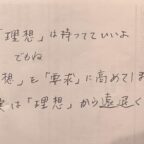 「理想」は持ってていいよ
でもね
想」を「要求」に高めてしま
実は「理想」から遠退く